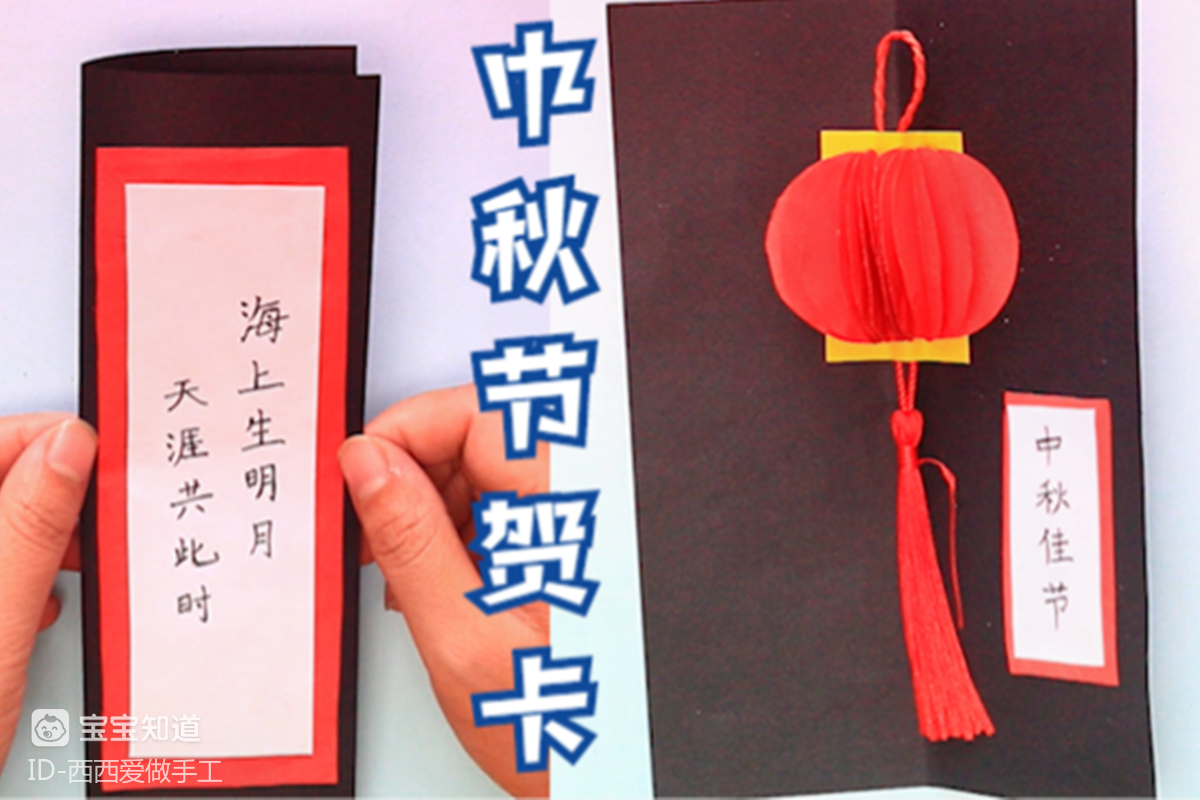 海上生明月
天涯共此时
中秋节贺卡
中秋佳节
宝宝知道
ID-西西爱做手工